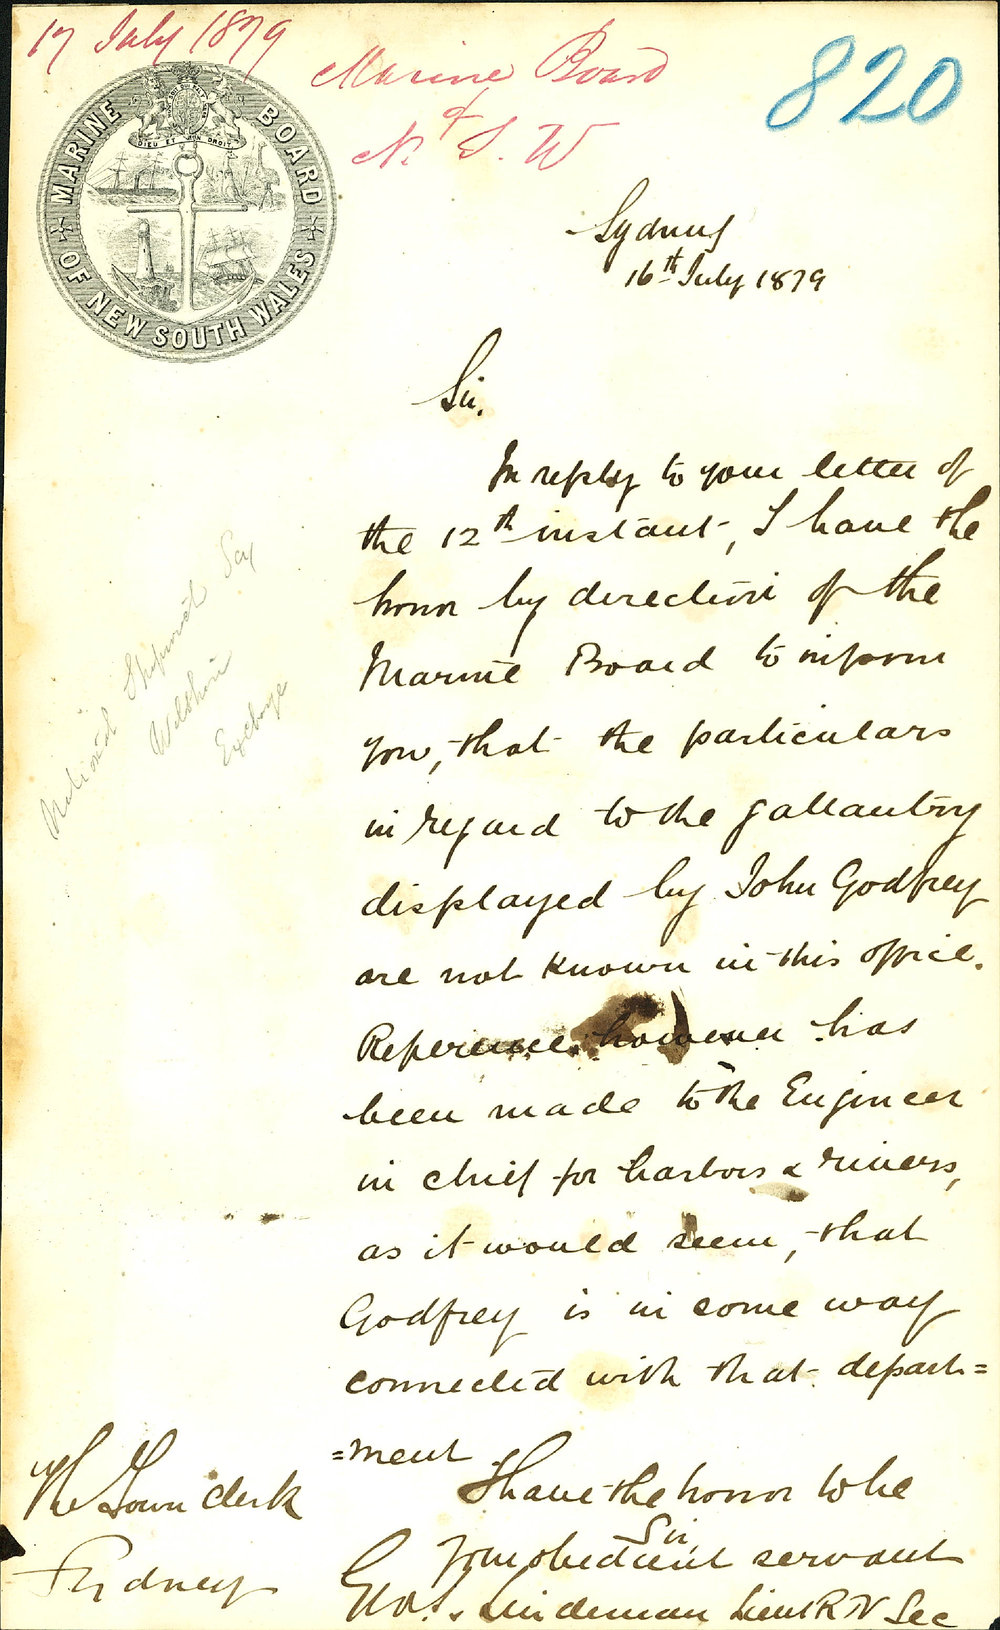 17 July 1879
Marine Board
of
N. S. W
820
MARINE BOARD
OF NEW SOUTH WALES
DIEU ET MON DROIT
Sydney
16th July 1879
Sir,
In reply to your letter of
the 12th instant, I have the
honor by direction of the
Marine Board to inform
you, that the particulars
in regard to the gallantry
displayed by John Godfrey
are not known in this office.
Reference however has
been made to the Engineer
in chief for harbors & rivers,
as it would seem, that
Godfrey is in some way
connected with that depart=
=ment.
I have the honor to be
Sir,
Your obedient servant
Geo. S. Lindeman Lieut R N Sec
The Town Clerk
Sydney
National Shipwreck Soc
Wilshire
Exchange